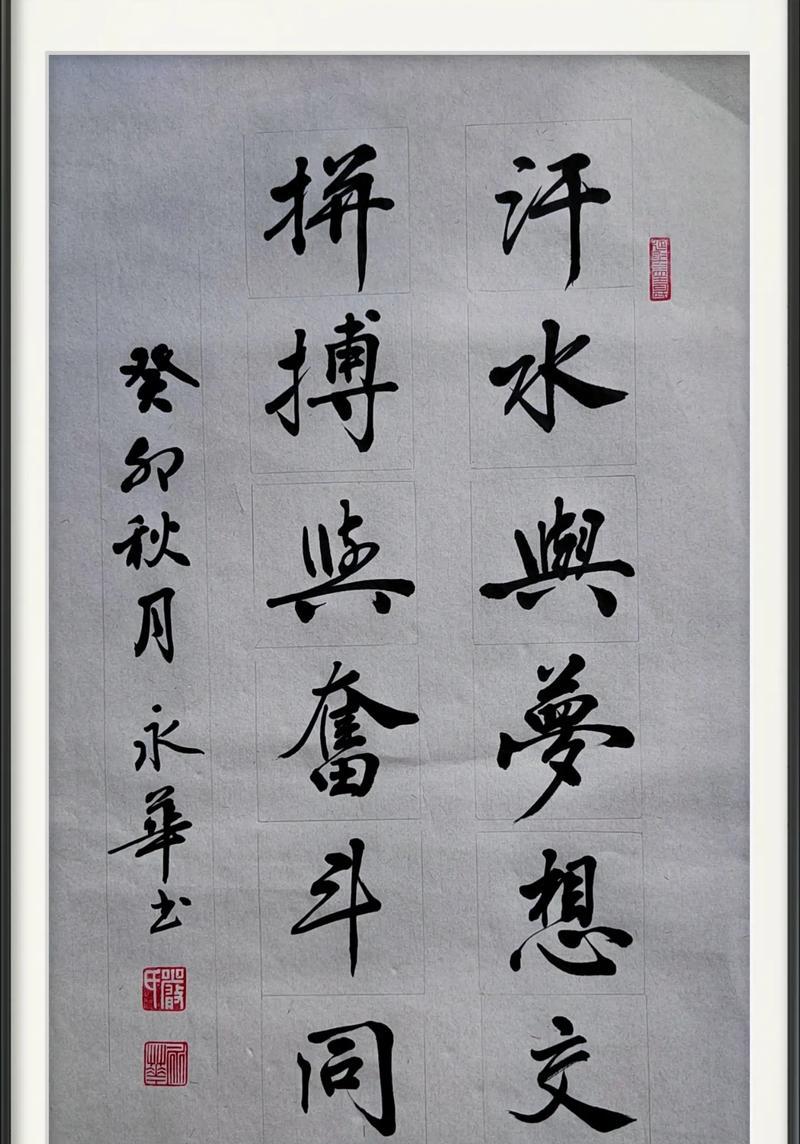 汗水與夢想交
拼搏與奮斗同
癸卯秋月 永華书
嚴氏
永華